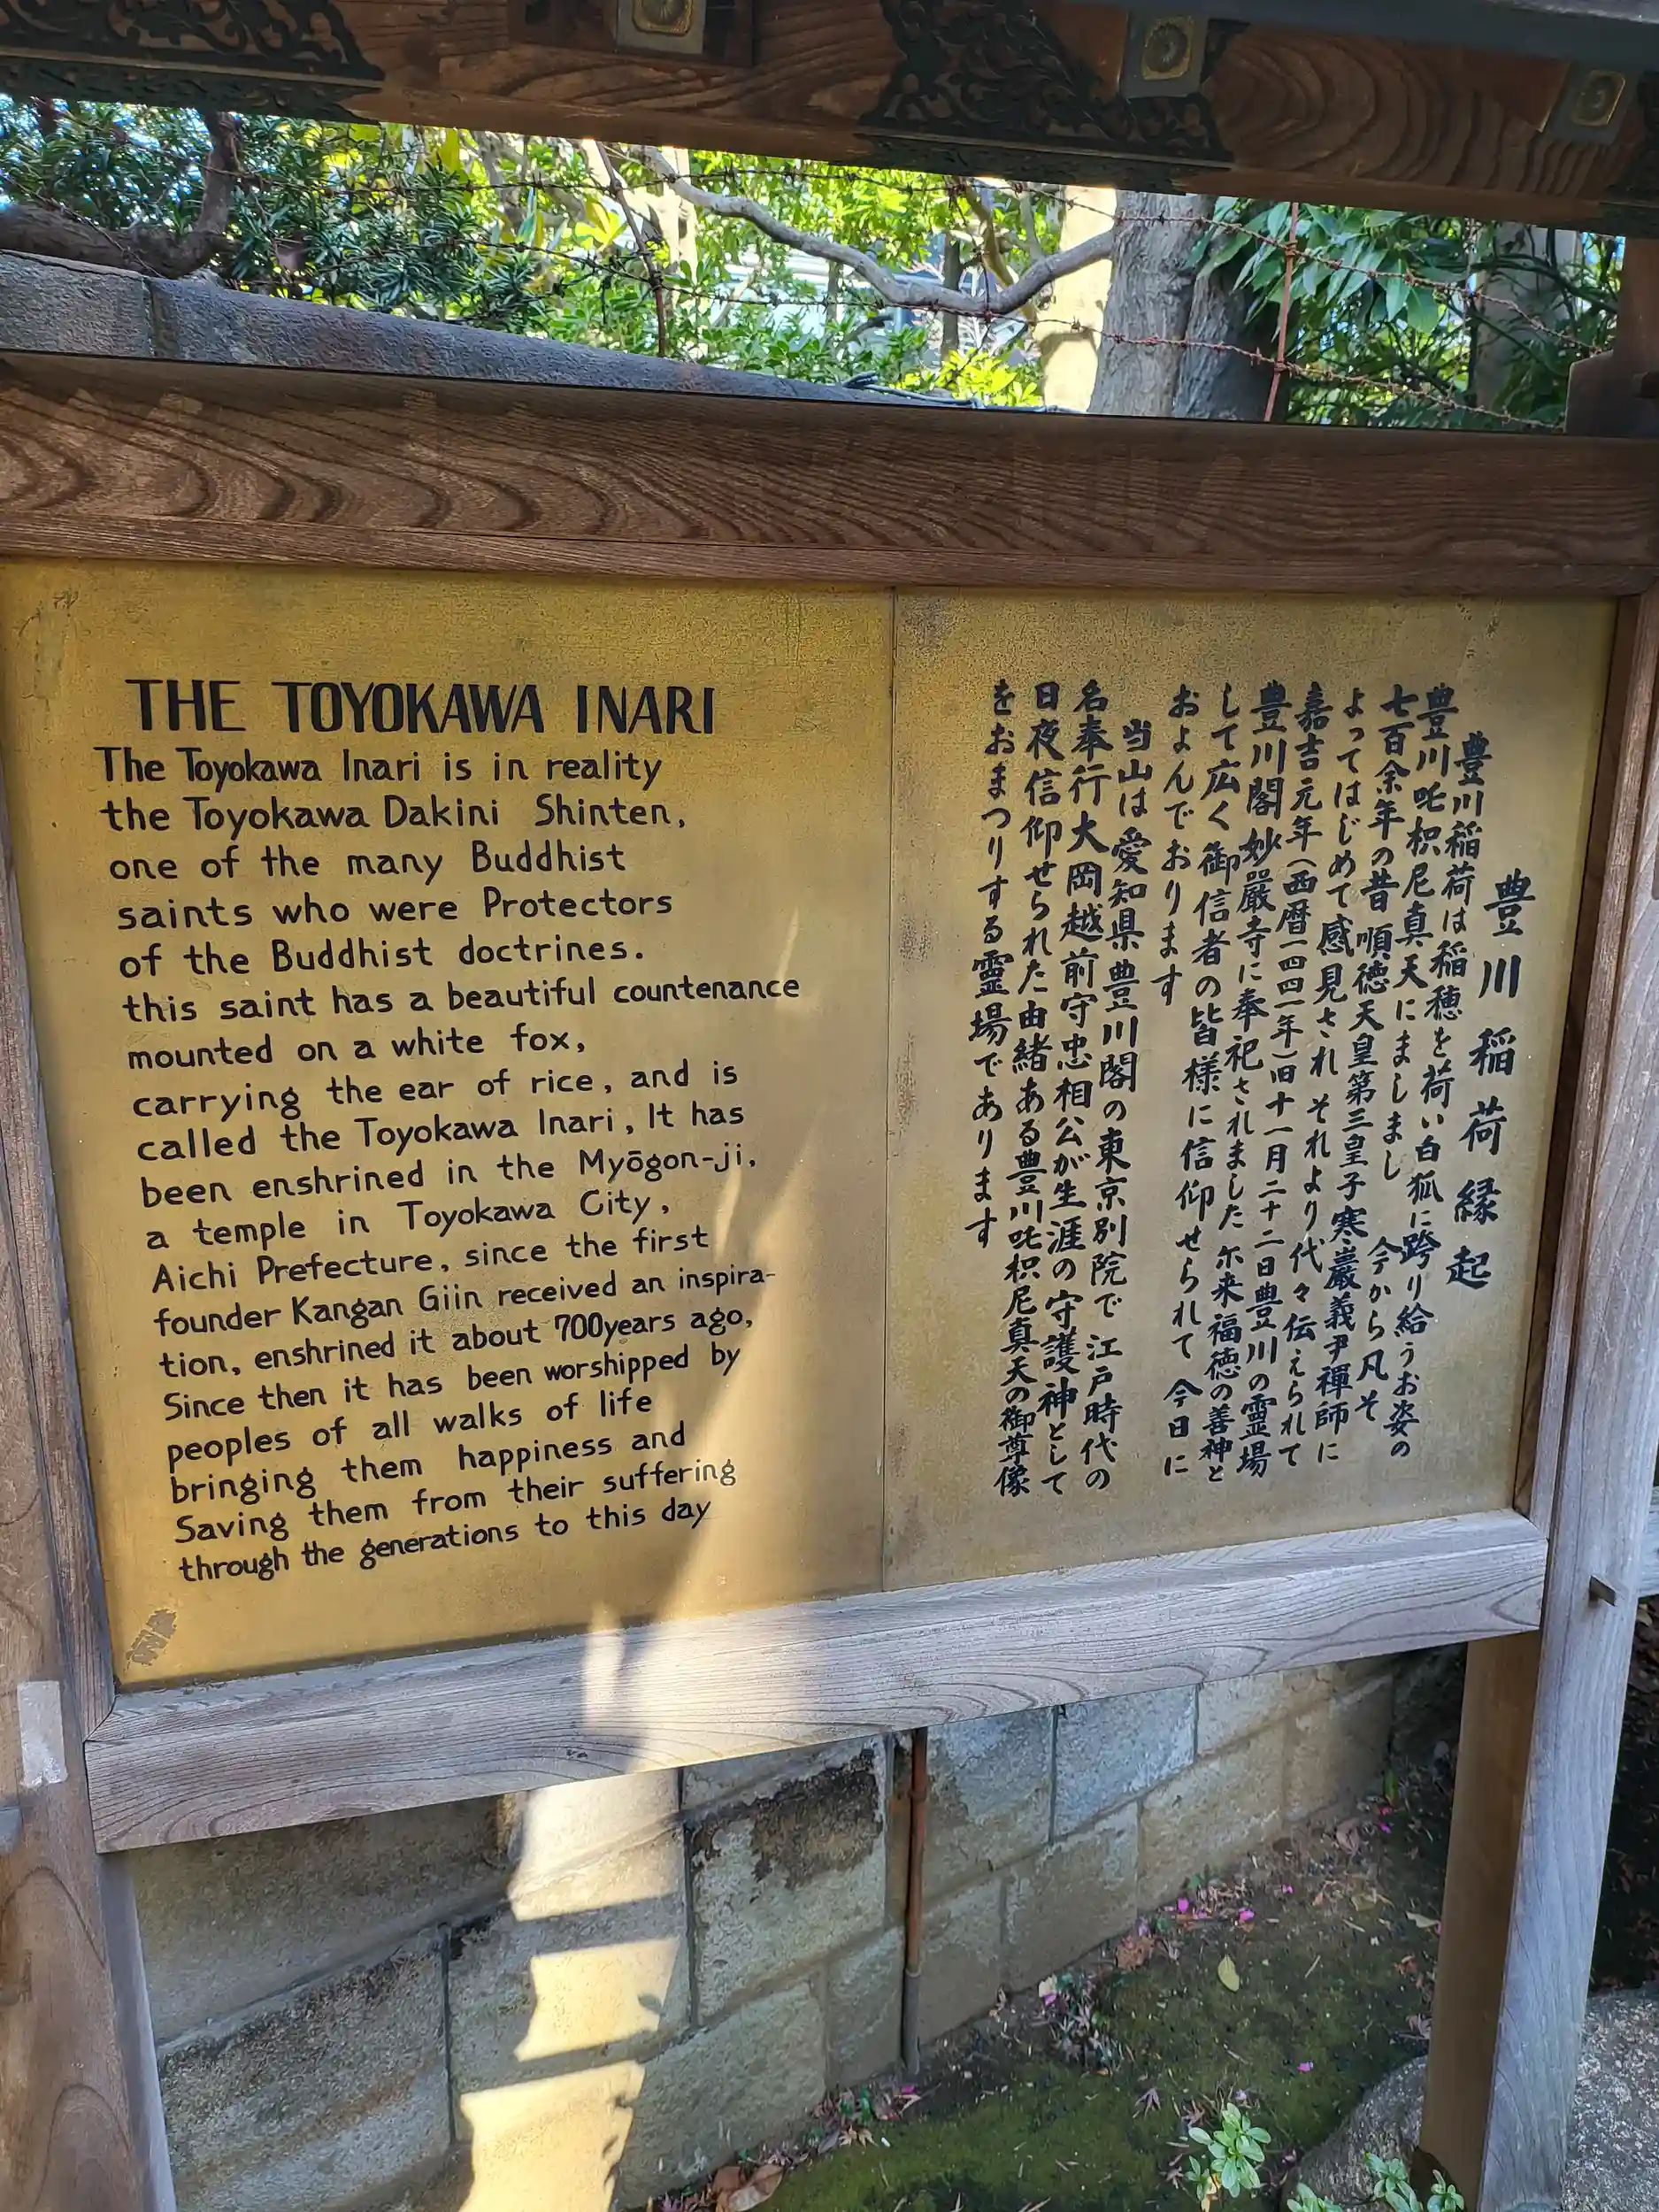 THE TOYOKAWA INARI
The Toyokawa Inari is in reality
the Toyokawa Dakini Shinten,
one of the many Buddhist
saints who were Protectors
of the Buddhist doctrines.
this saint has a beautiful countenance
mounted on a white fox,
carrying the ear of rice, and is
called the Toyokawa Inari, It has
been enshrined in the Myōgon-ji,
a temple in Toyokawa City,
Aichi Prefecture, since the first
founder Kangan Giin received an inspira-
tion, enshrined it about 700years ago,
Since then it has been worshipped by
peoples of all walks of life
bringing them happiness and
Saving them from their suffering
through the generations to this day
豊川稲荷縁起
豊川稲荷は稲穂を荷い白狐に跨り給うお姿の
豊川吒枳尼真天にましまし 今から凡そ
七百余年の昔 順徳天皇第三皇子寒巖義尹禪師に
よってはじめて感見され それより代々伝えられて
嘉吉元年(西暦一四四一年)旧十一月二十二日豊川の霊場
豊川閣妙嚴寺に奉祀されました 尓来福徳の善神と
して広く御信者の皆様に信仰せられて 今日に
およんでおります
当山は愛知県豊川閣の東京別院で 江戸時代の
名奉行大岡越前守忠相公が生涯の守護神として
日夜信仰せられた由緒ある豊川吒枳尼真天の御尊像
をおまつりする靈場であります